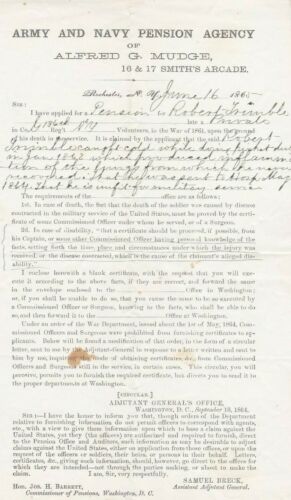 ARMY AND NAVY PENSION AGENCY
OF
ALFRED G. MUDGE,
16 & 17 SMITH'S ARCADE,
Rochester, N. Y. June 16 1865
SIR:
I have applied for a Pension for Robert Trimble
late a Private
in Co. Reg't N Y Volunteers, in the War of 1861, upon the ground
his death in service. It is claimed by the applicant that the said Robert
Trimble caught cold while
in Jan 1862 which produced inflamma
tion of the from which he never
recovered. That he was sent to
1864. That he is unfit for military service
The requirements of the office are as follows:
1st. In case of death, the fact that the death of the soldier was caused by disease
contracted in the military service of the United States, must be proved by the certifi-
cate of some Commissioned Officer under whom he served, or of a Surgeon.
2d. In case of disability, "that a certificate should be procured, if possible, from
his Captain, or some other Commissioned Officer having personal knowledge of the
facts, setting forth the time, place, and circumstances under which the injury was
received, or the disease contracted, which is the cause of the claimant's alleged disa-
bility."
I enclose herewith a blank certificate, with the request that you will exe-
cute it according to the above facts, if they are correct, and forward the same
in the envelope enclosed to the Office in Washington;
or, if you shall be unable to do so, that you cause the same to be so executed by
a Commissioned Officer or Surgeon, knowing to the facts, who shall be able to do
so, and then forward it to the Office at Washington.
Under an order of the War Department, issued about the 1st of May, 1864, Com-
missioned Officers and Surgeons were prohibited from furnishing certificates to ap-
plicants. Below will be found a modification of that order, in the form of a circular
letter, sent me by the Adjutant-General in response to a letter written and sent to
him by me, inquiring as to the mode of obtaining certificates from Commissioned
Officers and Surgeons still in the service, in certain cases. This circular, you will
perceive, permits you to furnish the required certificate, but directs you to send it to
the proper departments at Washington.
[CIRCULAR.]
ADJUTANT GENERAL'S OFFICE,
WASHINGTON, D. C., September 13, 1864.
SIR:—I have the honor to inform you that, though orders of the Department
relative to furnishing information do not permit officers to correspond with agents,
etc., with a view to give them information upon which to base a claim against the
United States, yet they (the officers) are authorized and required to furnish, direct to
the Pension Office and Auditors, such information as may be desirable to adjust
claims against the United States, either on application from those offices, or upon the
request of the officers or soldiers, their heirs, or persons in their behalf. The letters
and papers, however, should be forwarded direct to the offices for
which they are intended—not through the parties making, or about to make
the claim. I am, Sir, very respectfully,
SAMUEL BRECK,
Assistant Adjutant General.
Hon. JOS. H. BARRETT,
Commissioner of Pensions, Washington, D. C.